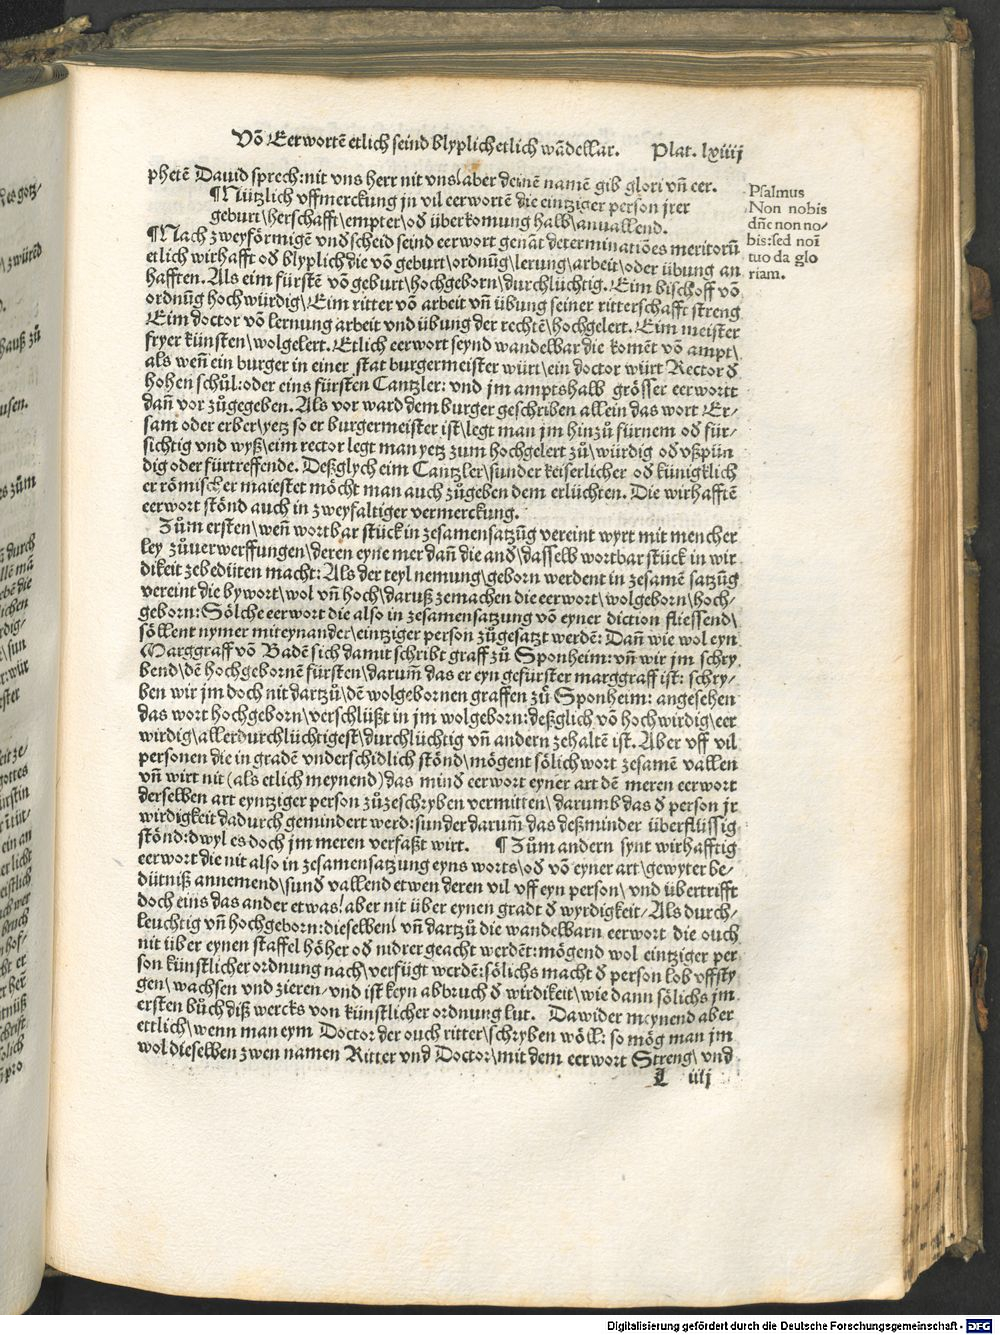 Võ Eerwortẽ etlich seind blyplich etlich wãdelbar. Plat. lxiiij
phetẽ Dauid sprech: nit vns herr nit vns/ aber deinẽ namẽ gib glori vñ eer.
¶ Nützlich vffmerckung jn vil eerwortẽ die eintziger person jrer
geburt\ herschafft\ empter\ oď überkomung halb\ anuallend.
Psalmus
Non nobis
dñe non no/
bis: sed noĩ
tuo da glo
riam.
¶ Nach zweyförmigẽ vndscheid seind eerwort genãt determinatiões meritorũ
etlich wirhafft oď blyplich die võ geburt\ ordnũg\ lerung\ arbeit\ oder übung an
hafften. Als eim fürstẽ võ geburt\ hochgeborn\ durchlüchtig. Eim bischoff võ
ordnũg hochwürdig\ Eim ritter võ arbeit vñ übung seiner ritterschafft streng
Eim doctor võ lernung arbeit vnd übung der rechtẽ\ hochgelert. Eim meister
fryer künsten\ wolgelert. Etlich eerwort seynd wandelbar die komẽt võ ampt\
als weñ ein burger in einer stat burgermeister würt\ ein doctor würt Rector ď
hohen schůl: oder eins fürsten Cantzler: vnd jm amptshalb grösser eerwortt
dañ vor zůgegeben. Als vor ward dem burger geschriben allein das wort Er/
sam oder erber\ yetz so er burgermeister ist\ legt man jm hinzů fürnem oď für/
sichtig vnd wyß\ eim rector legt man yetz zum hochgelert zů\ würdig oď vßpün
dig oder fürtreffende. Deßglych eim Cantzler\ sunder keiserlicher oď künigklich
er römischer maiestet möcht man auch zůgeben dem erlüchten. Die wirhafftẽ
eerwort stönd auch in zweyfaltiger vermerckung.
Zům ersten\ weñ wortbar stück in zesamensatzũg vereint wyrt mit mencher
ley zůuerwerffungen\ deren eyne mer dañ die anď\ dasselb wortbar stück in wir
dikeit ze bedüten macht: Als der teyl nemung\ geborn werdent in zesamẽ satzũg
vereint die bywort\ wol vñ hoch\ daruß zemachen die eerwort\ wolgeborn\ hoch/
geborn: Sölche eerwort die also in zesamensatzung võ eyner diction fliessend\
söllent nymer mit eynander\ eintziger person zůgesatzt werdẽ: Dañ wie wol eyn
Marggraff võ Badẽ sich damit schribt graff zů Sponheim: vñ wir jm schry
bend\ dẽ hochgebornẽ fürsten\ darum̃ das er eyn gefürster marggraff ist: schry/
ben wir jm doch nit dartzů\ dẽ wolgebornen graffen zů Sponheim: angesehen
das wort hochgeborn\ verschlüßt in jm wolgeborn: deßglich võ hochwirdig\ eer
wirdig\ allerdurchlüchtigest\ durchlüchtig vñ andern zehaltẽ ist. Aber vff vil
personen die in gradẽ vnderschidlich stönd\ mögent sölich wort zesamẽ vallen
vñ wirt nit (als etlich meynend) das minď eerwort eyner art dẽ meren eerwort
derselben art eyntziger person zůzeschryben vermitten\ darumb das ď person jr
wirdigkeit dadurch gemindert werd: sunder darum̃ das deßminder überflüssig
stönd: dwyl es doch jm meren verfaßt wirt. ¶ Zům andern synt wirhafftig
eerwort die nit also in zesamensatzung eyns worts\ oď võ eyner art\ gewyter be/
dütniß annemend\ sunď vallend etwen deren vil vff eyn person\ vnd übertrifft
doch eins das ander etwas/ aber nit über eynen gradt ď wyrdigkeit/ Als durch/
leuchtig vñ hochgeborn: dieselben/ vñ dartzů die wandelbarn eerwort die ouch
nit über eynen staffel höher oď nidrer geacht werdẽt: mögend wol eintziger per
son künstlicher ordnung nach\ verfügt werdẽ: sölichs macht ď person lob vffsty
gen\ wachsen vnd zieren/ vnd ist keyn abbruch ď wirdikeit\ wie dann sölichs jm
ersten bůch diß wercks von künstlicher ordnung lut. Dawider meynend aber
ettlich\ wenn man eym Doctor der ouch ritter\ schryben wöll: so mög man jm
wol dieselben zwen namen Ritter vnd Doctor\ mit dem eerwort Streng\ vnd
L iiij